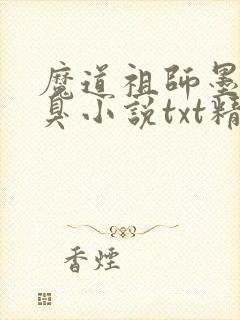 魔道祖師墨
臭小說txt精
香煙